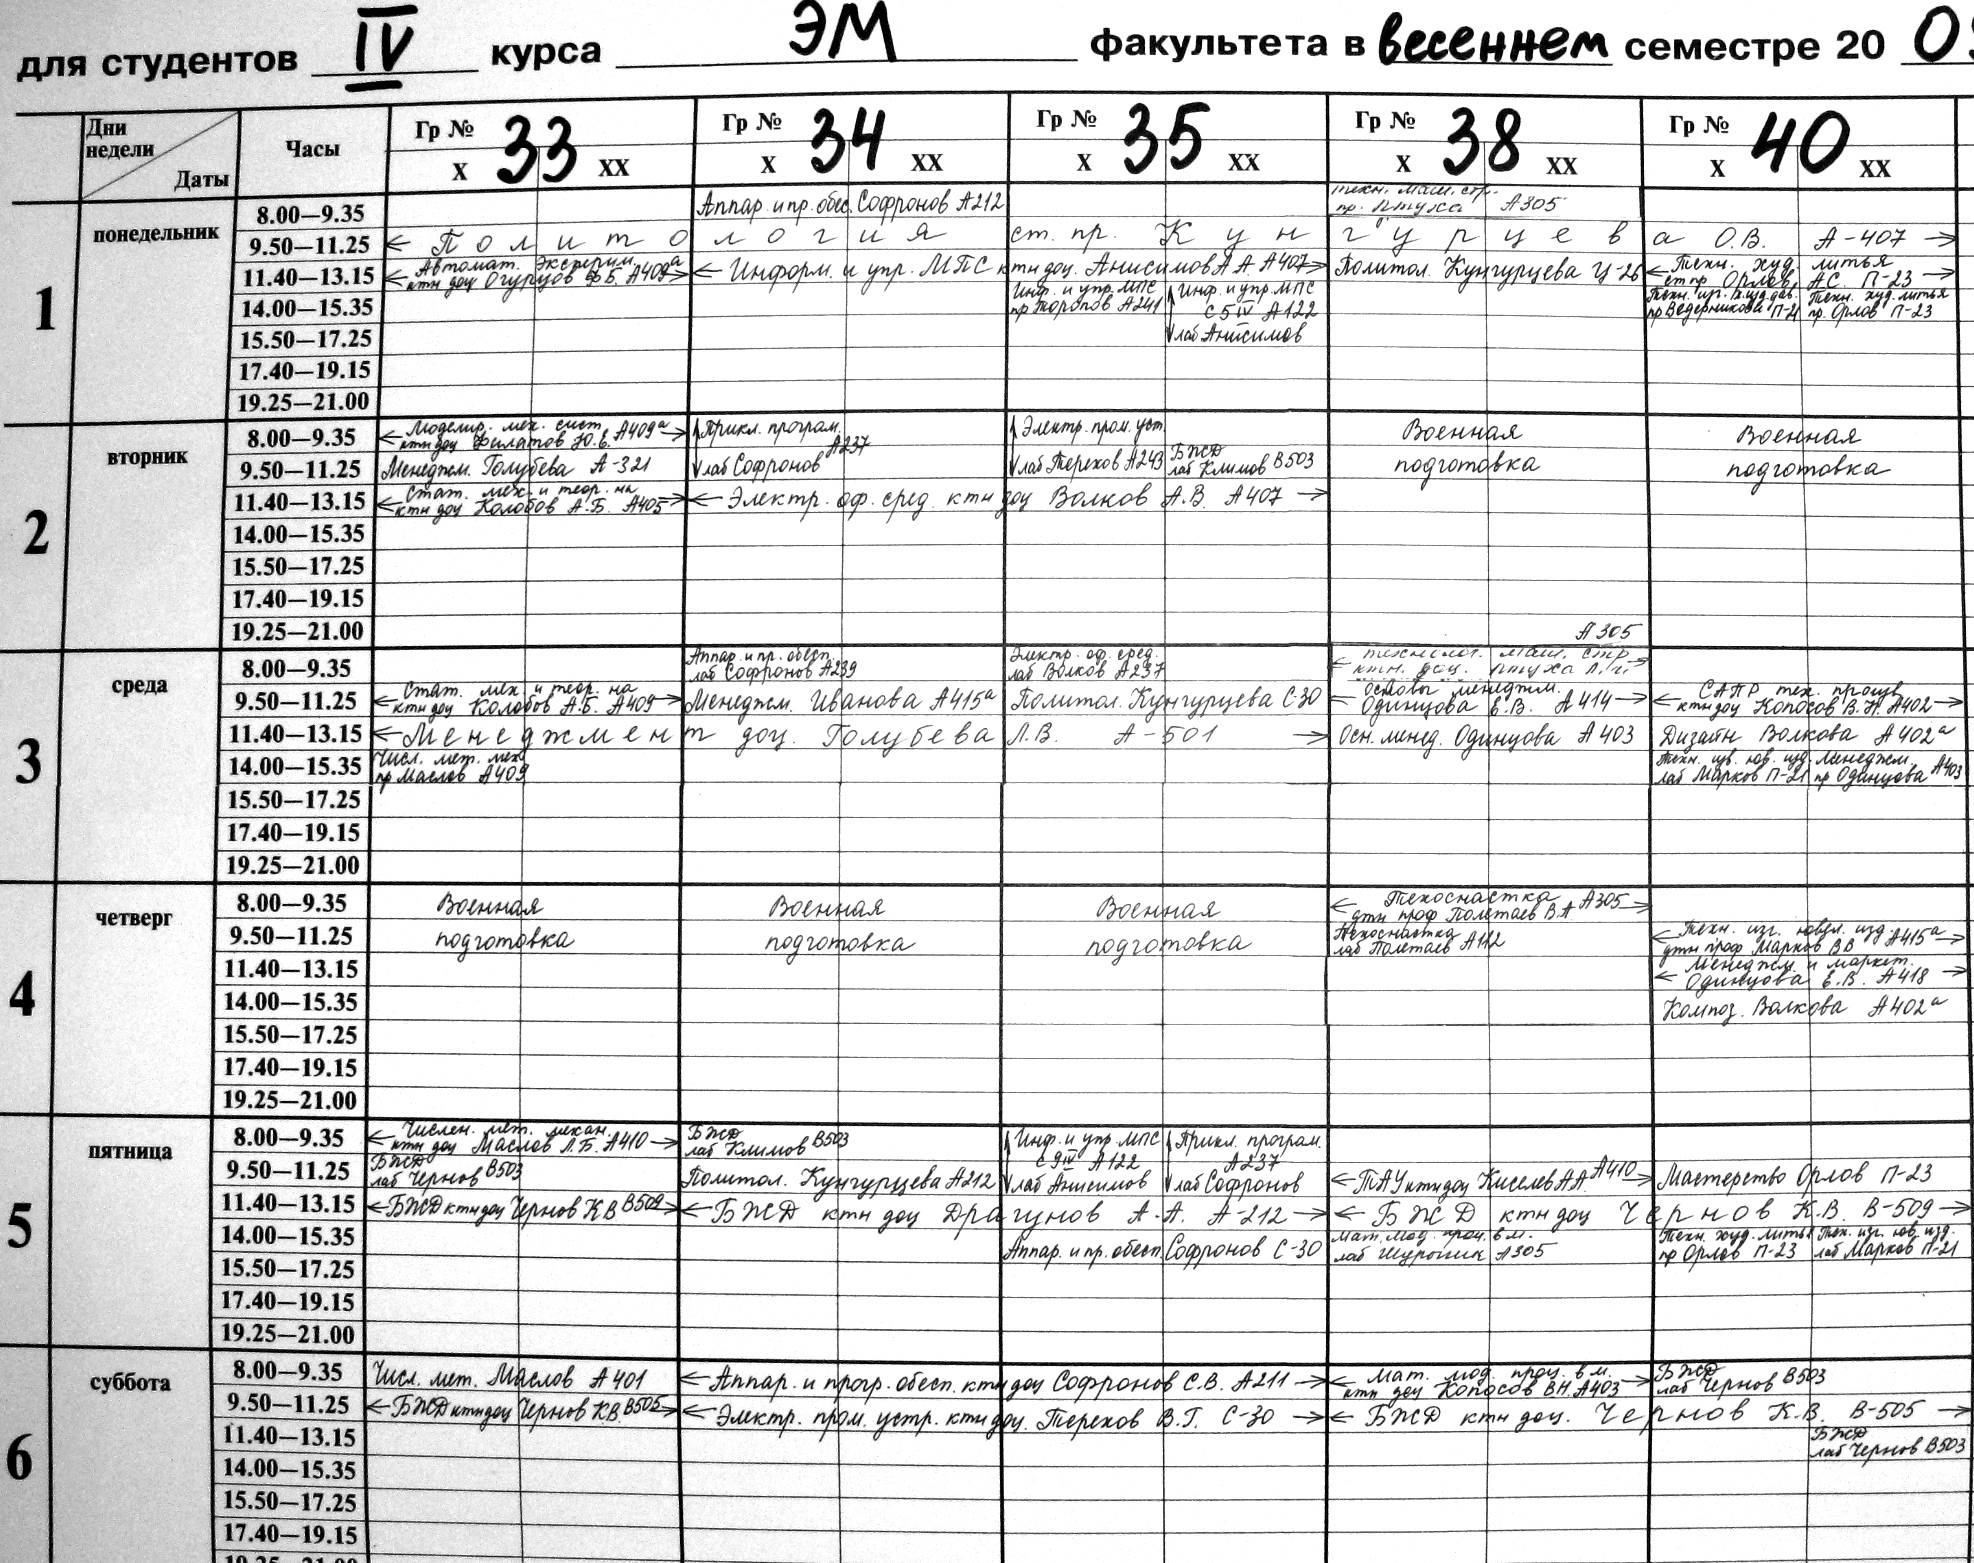 для студентов IV курса ЭМ факультета в весеннем семестре 20 09
Дни недели Даты Часы Гр № 33 X XX Гр № 34 X XX Гр № 35 X XX Гр № 38 X XX Гр № 40 X XX
1 понедельник
8.00—9.35 Аппар. и пр. обес. Софронов А212 техн. маш. стр. пр. Птуха А305
9.50—11.25 ← Политология ст. пр. Кунгурцева О.В. А-407 →
11.40—13.15 ← Автомат. эксперим. ктн доц Огурцов Ф.Б. А409а → ← Информ. и упр. МПС ктн доц. Анисимов А.А. А407 → Политол. Кунгурцева Ц-26 ← Техн. худ. литья ст пр Орлов АС. П-23 →
14.00—15.35 Инф. и упр. МПС пр Торопов А241 Инф. и упр. МПС с 5 IV А122 Техн. изг. худ. пр Ведерникова П-21 Техн. худ. литья пр. Орлов П-23
15.50—17.25 лаб Анисимов
17.40—19.15
19.25—21.00
2 вторник
8.00—9.35 ← Моделир. мех. сист. ктн доц Филатов Ю.Е. А409а → Прикл. програм. А237 Электр. пром. уст. Военная Военная
9.50—11.25 Менеджм. Голубева А-321 лаб Софронов лаб Терехов А243 БЖД лаб Климов В503 подготовка подготовка
11.40—13.15 ← Стат. мех. и теор. на ктн доц Колобов А.Б. А405 → ← Электр. оф. сред. ктн доц Волков А.В. А407 →
14.00—15.35
15.50—17.25
17.40—19.15
19.25—21.00 А305
3 среда
8.00—9.35 Аппар. и пр. обесп. лаб Софронов А239 Электр. оф. сред. лаб Волков А237 ← технолог. маш. стр ктн. доц. Птуха Л.И. →
9.50—11.25 ← Стат. мех. и теор. на ктн доц Колобов А.Б. А409 → Менеджм. Иванова А415а Политол. Кунгурцева С-30 ← Основы менеджм. Одинцова Е.В. А414 → ← САПР тех. процв ктн доц Копосов В.Н. А402 →
11.40—13.15 ← Менеджмент доц. Голубева Л.В. А-501 → Осн. менед. Одинцова А403 Дизайн Волкова А402а
14.00—15.35 Числ. мет. мех. пр Маслов А409 Техн. изг. юв. изд. лаб Марков П-21 Менеджм. пр Одинцова А403
15.50—17.25
17.40—19.15
19.25—21.00
4 четверг
8.00—9.35 Военная Военная Военная ← Техоснастка А305 дтн проф Полетаев В.А →
9.50—11.25 подготовка подготовка подготовка Техоснастка лаб Полетаев А112 ← Техн. изг. ювел. изд А415а дтн проф Марков ВВ →
11.40—13.15 ← Менеджм. и маркет. Одинцова Е.В. А418 →
14.00—15.35 Композ. Волкова А402а
15.50—17.25
17.40—19.15
19.25—21.00
5 пятница
8.00—9.35 ← Числен. мет. механ. ктн доц Маслов Л.Б. А410 → БЖД лаб Климов В503 Инф. и упр МПС с 9 IV А122 Прикл. програм. А237
9.50—11.25 БЖД лаб Чернов В503 Политол. Кунгурцева А212 лаб Анисимов лаб Софронов ← ТАУ ктн доц Киселев А.А. А410 → Мастерство Орлов П-23
11.40—13.15 ← БЖД ктн доц Чернов КВ В509 → ← БЖД ктн доц Драгунов А.А. А-212 → ← БЖД ктн доц Чернов К.В. В-509 →
14.00—15.35 Аппар. и пр. обесп. Софронов С-30 Мат. мод. проц. в м. лаб Шурошик А305 Техн. худ. литья пр Орлов П-23 Тех. изг. юв. изд. лаб Марков П-21
15.50—17.25
17.40—19.15
19.25—21.00
6 суббота
8.00—9.35 Числ. мет. Маслов А401 ← Аппар. и прогр. обесп. ктн доц Софронов С.В. А211 → ← Мат. мод. проц. в м. ктн доц Копосов ВН. А403 → БЖД лаб Чернов В503
9.50—11.25 ← БЖД ктн доц Чернов КВ. В505 → ← Электр. пром. устр. ктн доц. Терехов В.Г. С-30 → ← БЖД ктн доц. Чернов К.В. В-505 →
11.40—13.15 БЖД лаб Чернов В503
14.00—15.35
15.50—17.25
17.40—19.15
19.25—21.00